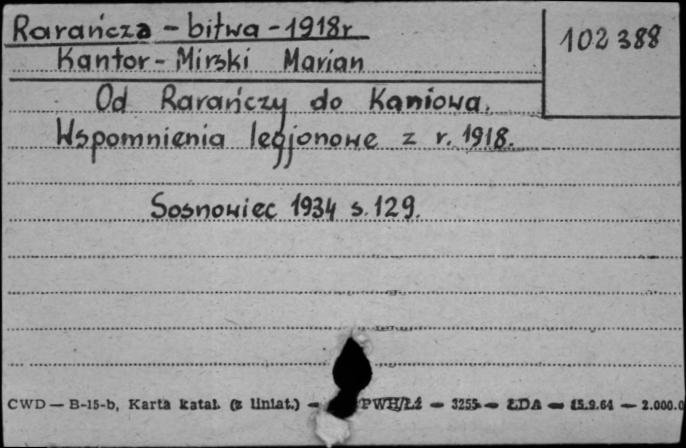 Rarańcza - bitwa - 1918r
102 388
Kantor - Mirski Marian
Od Rarańczy do Kaniowa.
Wspomnienia legjonowe z r. 1918.
Sosnowiec 1934 s. 129.
CWD — B-15-b, Karta katal. (z liniat.) — PWH/Łź — 3255 — ŁDA — 15.9.64 — 2.000.0